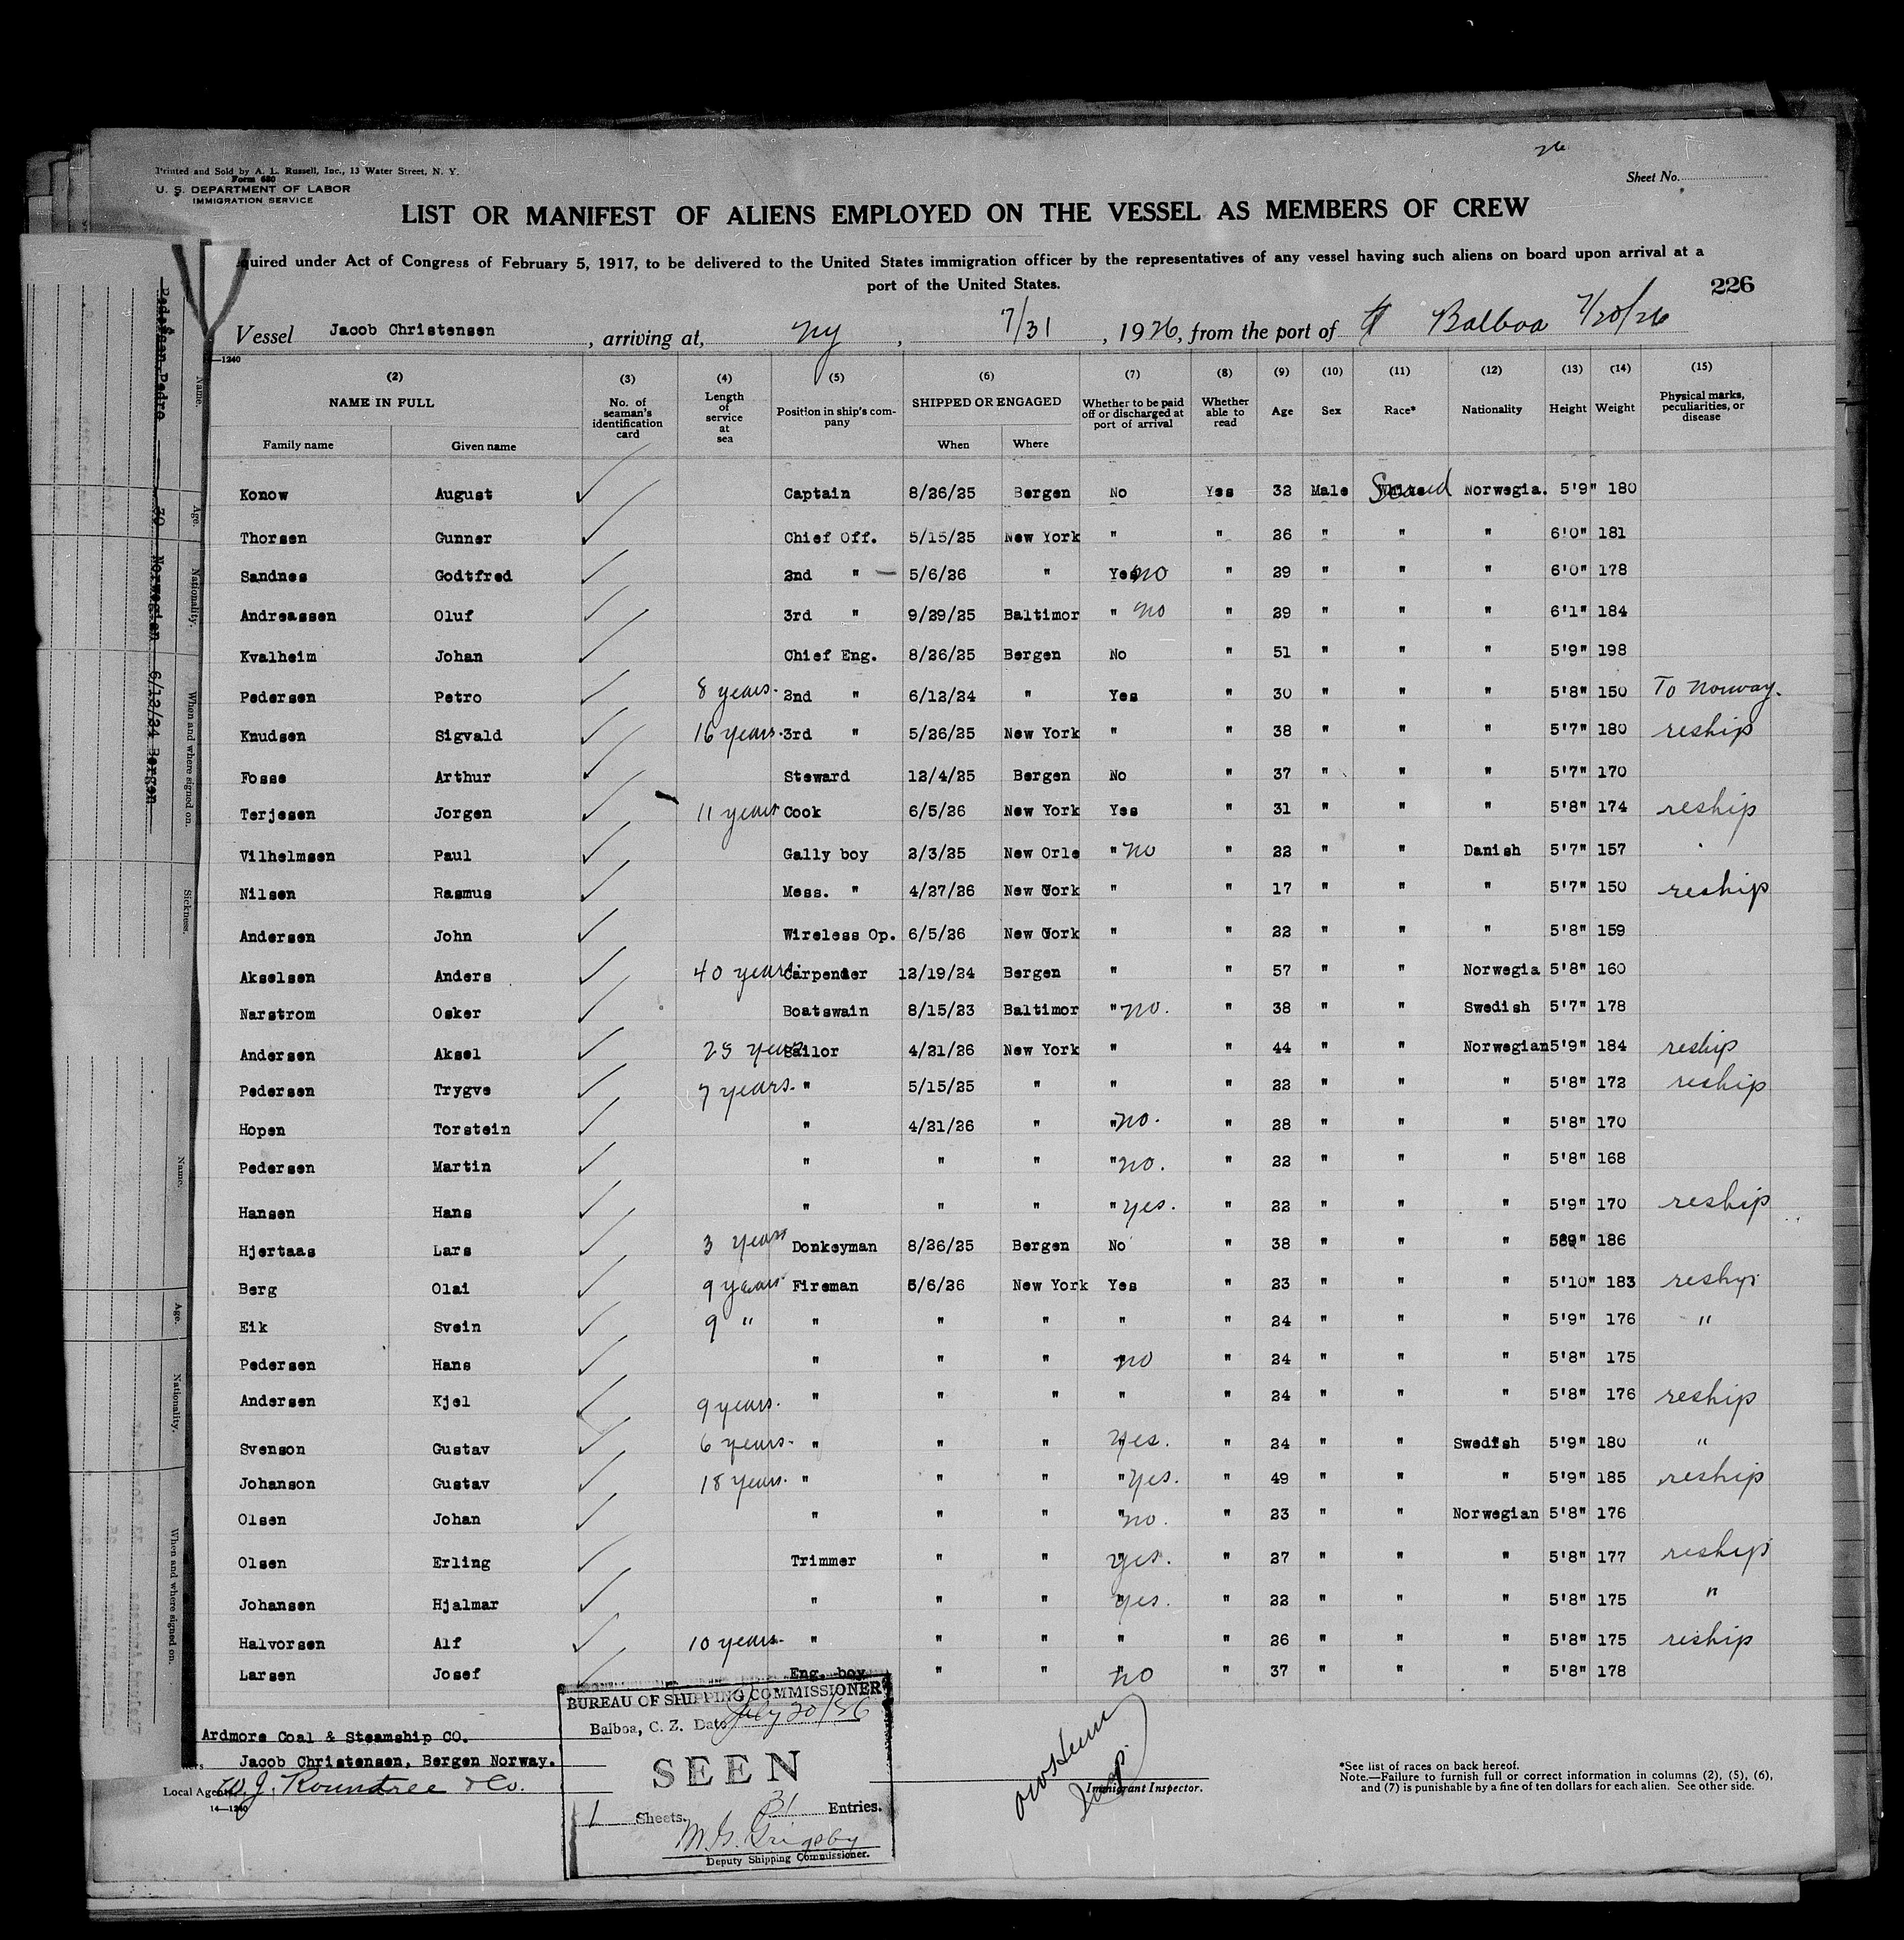 26
Printed and Sold by A. L. Russell, Inc., 13 Water Street, N. Y.
Form 680
U. S. DEPARTMENT OF LABOR
IMMIGRATION SERVICE
Sheet No.
LIST OR MANIFEST OF ALIENS EMPLOYED ON THE VESSEL AS MEMBERS OF CREW
quired under Act of Congress of February 5, 1917, to be delivered to the United States immigration officer by the representatives of any vessel having such aliens on board upon arrival at a
port of the United States.
226
Vessel Jacob Christensen, arriving at, Ny, 7/31, 1926, from the port of Balboa 7/20/26
—1240
(2) (3) (4) (5) (6) (7) (8) (9) (10) (11) (12) (13) (14) (15)
NAME IN FULL No. of seaman's identification card Length of service at sea Position in ship's company SHIPPED OR ENGAGED Whether to be paid off or discharged at port of arrival Whether able to read Age Sex Race* Nationality Height Weight Physical marks, peculiarities, or disease
Family name Given name When Where
Konow August Captain 8/26/25 Bergen No Yes 32 Male Scand Norwegia. 5'9" 180
Thorsen Gunner Chief Off. 5/15/25 New York " " 26 " " " 6'0" 181
Sandnes Godtfred 2nd " — 5/6/26 " Yes no " 29 " " " 6'0" 178
Andreassen Oluf 3rd " 9/29/25 Baltimor " no " 29 " " " 6'1" 184
Kvalheim Johan Chief Eng. 8/26/25 Bergen No " 51 " " " 5'9" 198
Pedersen Petro 8 years. 2nd " 6/12/24 " Yes " 30 " " " 5'8" 150 To Norway.
Knudsen Sigvald 16 years. 3rd " 5/26/25 New York " " 38 " " " 5'7" 180 reship
Fosse Arthur Steward 12/4/25 Bergen No " 37 " " " 5'7" 170
Terjesen Jorgen 11 years Cook 6/5/26 New York Yes " 31 " " " 5'8" 174 reship
Vilhelmsen Paul Gally boy 2/3/25 New Orle " no " 22 " " Danish 5'7" 157
Nilsen Rasmus Mess. " 4/27/26 New York " " 17 " " " 5'7" 150 reship
Andersen John Wireless Op. 6/5/26 New York " " 22 " " " 5'8" 159
Akselsen Anders 40 years. Carpenter 12/19/24 Bergen " " 57 " " Norwegia 5'8" 160
Narstrom Osker Boatswain 8/15/23 Baltimor " no. " 38 " " Swedish 5'7" 178
Andersen Aksel 25 years Sailor 4/21/26 New York " " 44 " " Norwegian 5'9" 184 reship
Pedersen Trygve 7 years. " 5/15/25 " " " 22 " " " 5'8" 172 reship
Hopen Torstein " 4/21/26 " " no. " 28 " " " 5'8" 170
Pedersen Martin " " " " no. " 22 " " " 5'8" 168
Hansen Hans " " " " yes. " 22 " " " 5'9" 170 reship
Hjertaas Lars 3 years Donkeyman 8/26/25 Bergen No " 38 " " " 589" 186
Berg Olai 9 years. Fireman 5/6/26 New York Yes " 23 " " " 5'10" 183 reship
Eik Svein 9 " " " " " " 24 " " " 5'9" 176 "
Pedersen Hans " " " " no " 24 " " " 5'8" 175
Andersen Kjel 9 years. " " " " " 24 " " " 5'8" 176 reship
Svenson Gustav 6 years. " " " " yes. " 24 " " Swedish 5'9" 180 "
Johanson Gustav 18 years. " " " " yes. " 49 " " " 5'9" 185 reship
Olsen Johan " " " " no. " 23 " " Norwegian 5'8" 176
Olsen Erling Trimmer " " " yes. " 27 " " " 5'8" 177 reship
Johansen Hjalmar " " " " yes. " 22 " " " 5'8" 175 "
Halvorsen Alf 10 years. " " " " " 26 " " " 5'8" 175 reship
Larsen Josef Eng. boy " " " no " 37 " " " 5'8" 178
Ardmore Coal & Steamship CO.
Jacob Christensen, Bergen Norway.
Local Agents W. J. Roundtree & Co.
14—1240
BUREAU OF SHIPPING COMMISSIONER
Balboa, C. Z. Date July 20/26
SEEN
1 Sheets. 31 Entries.
M. G. Grigsby
Deputy Shipping Commissioner.
Insp.
Immigrant Inspector.
*See list of races on back hereof.
Note.—Failure to furnish full or correct information in columns (2), (5), (6),
and (7) is punishable by a fine of ten dollars for each alien. See other side.
Pedersen, Pedro 30 Norwegian 6/12/24 Bergen
Name. Age. Nationality. When and where signed on. Sickness.
Name. Age. Nationality. When and where signed on.